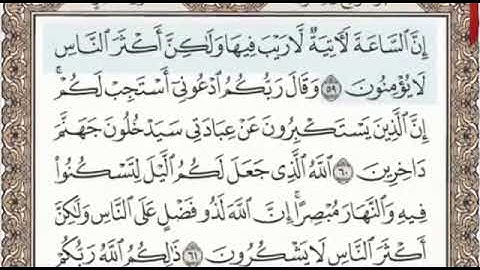 إِنَّ ٱلسَّاعَةَ لَأٓتِيَةٌ لَّا رَيْبَ فِيهَا وَلَـٰكِنَّ أَكْثَرَ ٱلنَّاسِ
لَا يُؤْمِنُونَ ٥٩ وَقَالَ رَبُّكُمُ ٱدْعُونِىٓ أَسْتَجِبْ لَكُمْ ۚ
إِنَّ ٱلَّذِينَ يَسْتَكْبِرُونَ عَنْ عِبَادَتِى سَيَدْخُلُونَ جَهَنَّمَ
دَاخِرِينَ ٦٠ ٱللَّهُ ٱلَّذِى جَعَلَ لَكُمُ ٱلَّيْلَ لِتَسْكُنُوا۟
فِيهِ وَٱلنَّهَارَ مُبْصِرًا ۚ إِنَّ ٱللَّهَ لَذُو فَضْلٍ عَلَى ٱلنَّاسِ وَلَـٰكِنَّ
أَكْثَرَ ٱلنَّاسِ لَا يَشْكُرُونَ ٦١ ذَٰلِكُمُ ٱللَّهُ رَبُّكُمْ